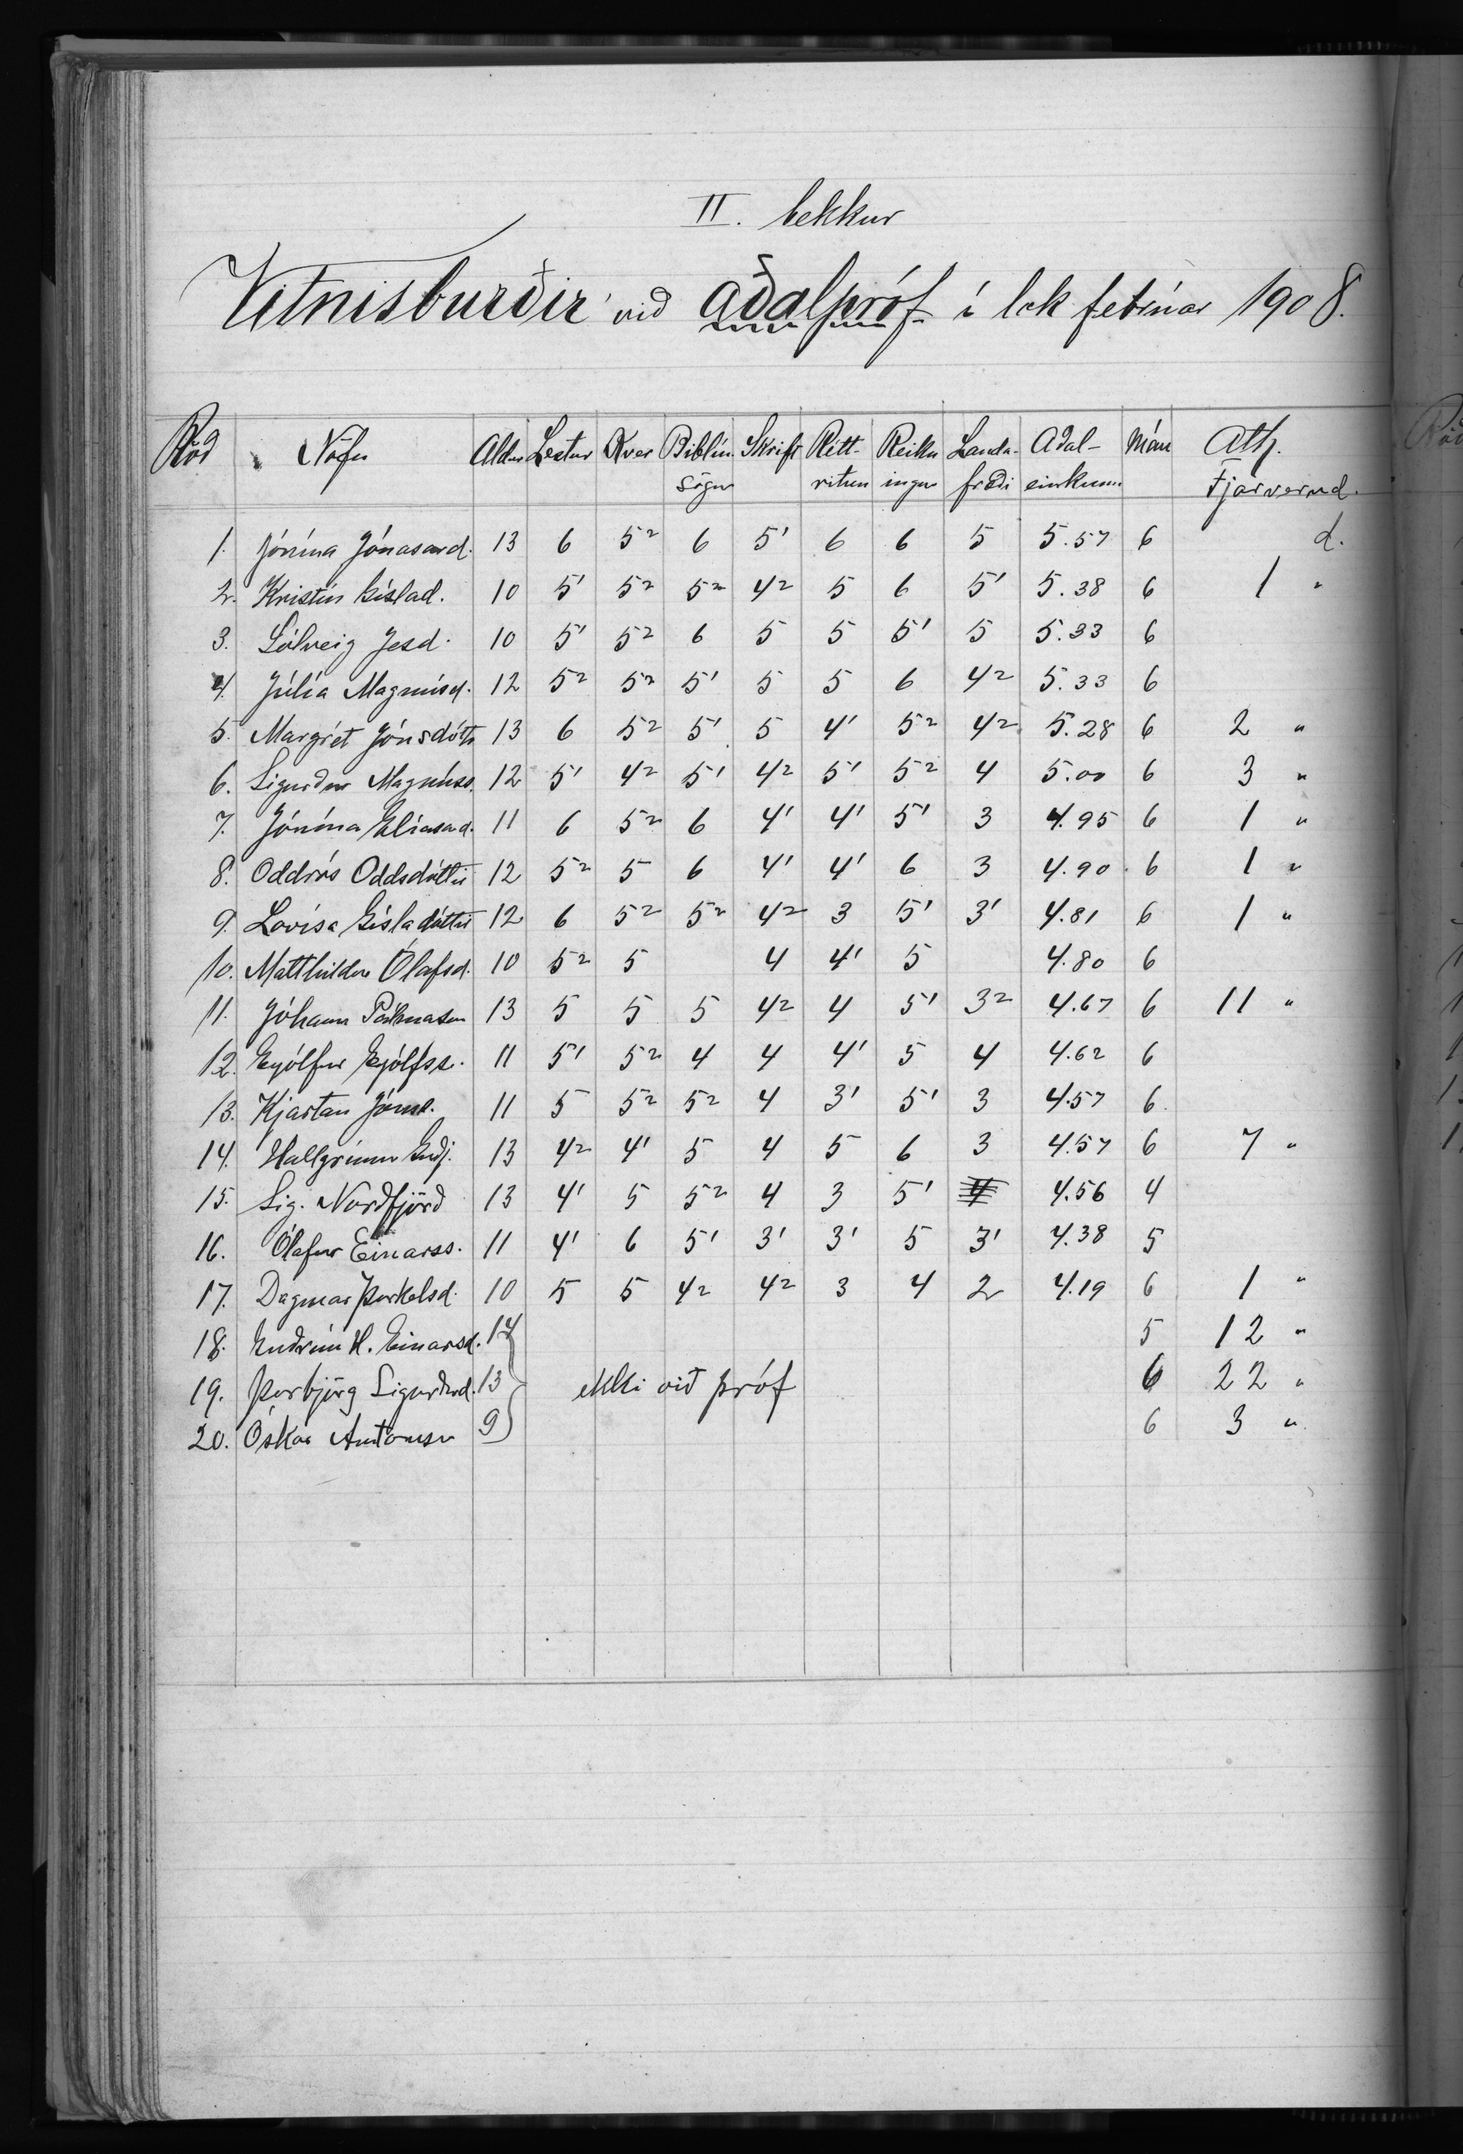 II. bekkur
Vitnisburðir við aðalpróf í lok febrúar 1908.
Röð Nöfn Aldur Lestur Kver Biblíu sögur Skrift Rétt- ritun Reikn ingur Landa- fræði Aðal- einkunn Mán Ath. Fjarverud.
1. Jónína Jónasard. 13 6 5² 6 5' 6 6 5 5.57 6 d.
2. Kristín Gíslad. 10 5' 5² 5² 4² 5 6 5' 5.38 6 1 "
3. Sólveig Jesd. 10 5' 5² 6 5 5 5' 5 5.33 6
4. Júlía Magnúsd. 12 5² 5² 5' 5 5 6 4² 5.33 6
5. Margrét Jónsdótt 13 6 5² 5' 5 4' 5² 4² 5.28 6 2 "
6. Sigurður Magnúss. 12 5' 4² 5' 4² 5' 5² 4 5.00 6 3 "
7. Jónína Elíasard. 11 6 5² 6 4' 4' 5' 3 4.95 6 1 "
8. Oddrós Oddsdóttir 12 5² 5 6 4' 4' 6 3 4.90 6 1 "
9. Lovísa Gísladóttir 12 6 5² 5² 4² 3 5' 3' 4.81 6 1 "
10. Matthildur Ólafsd. 10 5² 5 4 4' 5 4.80 6
11. Jóhann Pálmason 13 5 5 5 4² 4 5' 3² 4.67 6 11 "
12. Eyjólfur Eyjólfss. 11 5' 5² 4 4 4' 5 4 4.62 6
13. Kjartan Jónss. 11 5 5² 5² 4 3' 5' 3 4.57 6
14. Hallgrímur Guðj. 13 4² 4' 5 4 5 6 3 4.57 6 7 "
15. Sig. Norðfjörð 13 4' 5 5² 4 3 5' 4 4.56 4
16. Ólafur Einarss. 11 4' 6 5' 3' 3' 5 3' 4.38 5
17. Dagmar Þorkelsd. 10 5 5 4² 4² 3 4 2 4.19 6 1 "
18. Guðrún H. Einarsd. 14 5 12 "
19. Þorbjörg Sigurðard. 13 ekki við próf 6 22 "
20. Óskar Antonsson 9 6 3 "